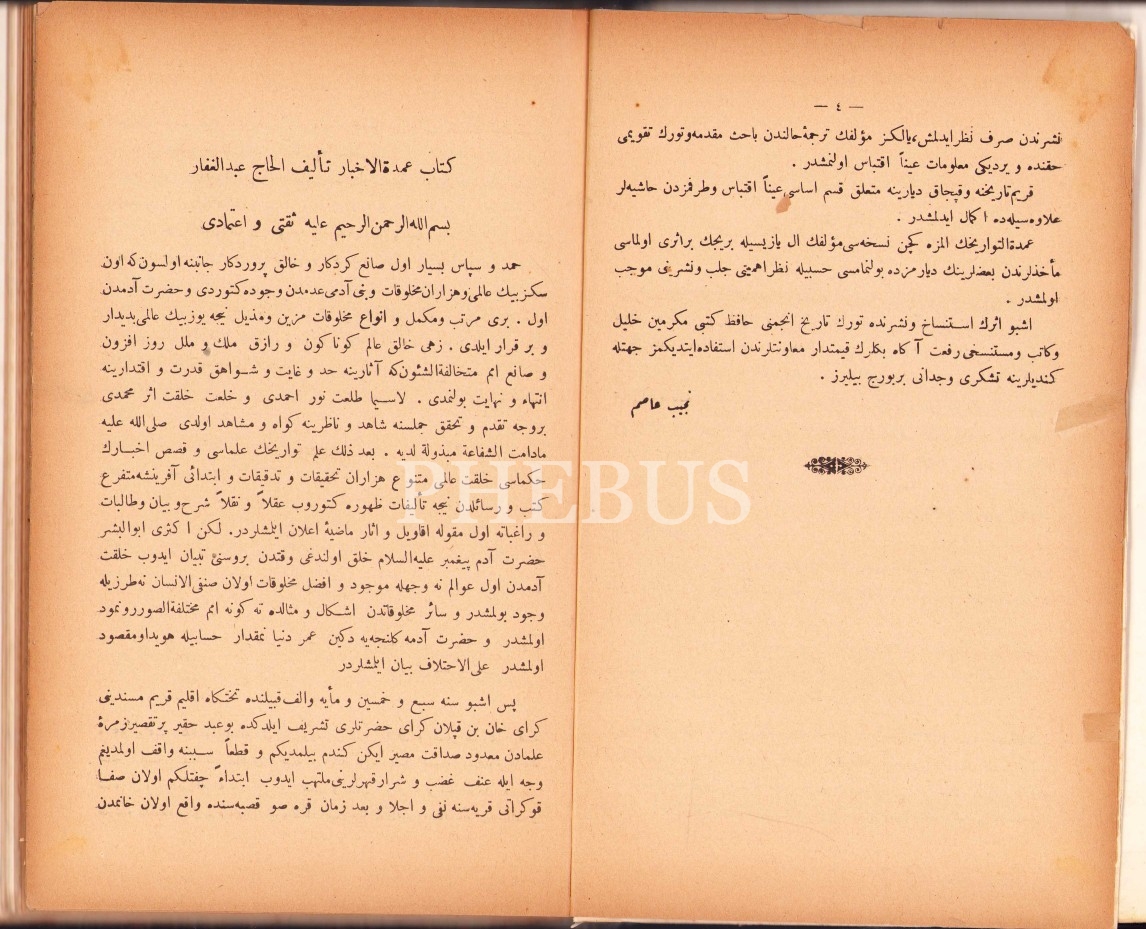 — ٤ —
نشرندن صرف نظر ایدلمش، یالکز مؤلفك ترجمهٔ حالندن باحث مقدمه و تورك تقویمی
حقنده و یردیکی معلومات عیناً اقتباس اولنمشدر .
قریم تاریخنه وقپچاق دیارینه متعلق قسم اساسی عیناً اقتباس وطرفمزدن حاشیه‌لر
علاوه‌سیله‌ده اکمال ایدلمشدر .
عمدة‌التواریخك المزه کچن نسخه‌سی مؤلفك ال یازیسیله بریجك براثری اولماسی
مأخذلرندن بعضلرینك دیارمزده بولنمامسی حسبیله نظر اهمیتی جلب ونشرینی موجب
اولمشدر .
اشبو اثرك استنساخ ونشرنده تورك تاریخ انجمنی حافظ کتبی مکرمین خلیل
وکاتب ومستنسخی رفعت آکاه بکلرك قیمتدار معاونتلرندن استفاده ایتدیکمز جهتله
کندیلرینه تشکری وجدانی بربورج بیلیرز .
نجیب عاصم
کتاب عمدة‌الاخبار تألیف الحاج عبدالغفار
بسم‌الله‌الرحمن‌الرحیم علیه ثقتی و اعتمادی
حمد و سپاس بسیار اول صانع کردکار و خالق پروردکار جانبنه اولسون‌که اون
سکز بیك عالمی وهزاران مخلوقات وبنی آدمی عدمدن وجوده کتوردی وحضرت آدمدن
اول . بری مرتب ومکمل و انواع مخلوقات مزین ومذیل نیجه یوز بیك عالمی بدیدار
و بر قرار ایلدی . زهی خالق عالم کوناکون و رازق ملك و ملل روز افزون
و صانع امم متخالفة‌الشئون‌که آثارینه حد و غایت و شواهق قدرت و اقتدارینه
انتهاء و نهایت بولنمدی . لاسیما طلعت نور احمدی و خلعت خلقت اثر محمدی
بروجه تقدم و تحقق جملسنه شاهد و ناظرینه کواه و مشاهد اولدی صلی‌الله علیه
مادامت الشفاعة مبذولة لدیه . بعد ذلك علم تواریخك علماسی و قصص اخبارك
حکماسی خلقت عالمی متنوع هزاران تحقیقات و تدقیقات و ابتدائی آفرینشه متفرع
کتب و رسائلدن نیجه تألیفات ظهوره کتوروب عقلاً و نقلاً شرح و بیان وطالبات
و راغباته اول مقوله اقاویل و اثار ماضیهٔ اعلان ایلمشلردر. لکن اکثری ابوالبشر
حضرت آدم پیغمبر علیه‌السلام خلق اولندغی وقتدن بروسنی تبیان ایدوب خلقت
آدمدن اول عوالم نه وجهله موجود و افضل مخلوقات اولان صنفی‌الانسان نه‌طرزیله
وجود بولمشدر و سائر مخلوقاتدن اشکال و مثالده نه کونه امم مختلفة‌الصور رونمود
اولمشدر و حضرت آدمه کلنجه‌یه دکین عمر دنیا نمقدار حسابیله هویدا ومقصود
اولمشدر علی‌الاختلاف بیان ایلمشلردر
پس اشبو سنه سبع و خمسین و مأیه والف قبیلنده تختکاه اقلیم قریم مسندینی
کرای خان بن قپلان کرای حضرتلری تشریف ایلدکده بوعبد حقیر پرتقصیر زمرهٔ
علمادن معدود صداقت مصیر ایکن کندم بیلمدیکم و قطعاً سببنه واقف اولمدیغم
وجه ایله عنف غضب و شرار قهرلرینی ملتهب ایدوب ابتداءً چفتلکم اولان صفا
قوکراتی قریه‌سنه نفی و اجلا و بعد زمان قره صو قصبه‌سنده واقع اولان خانمدن
PHEBUS